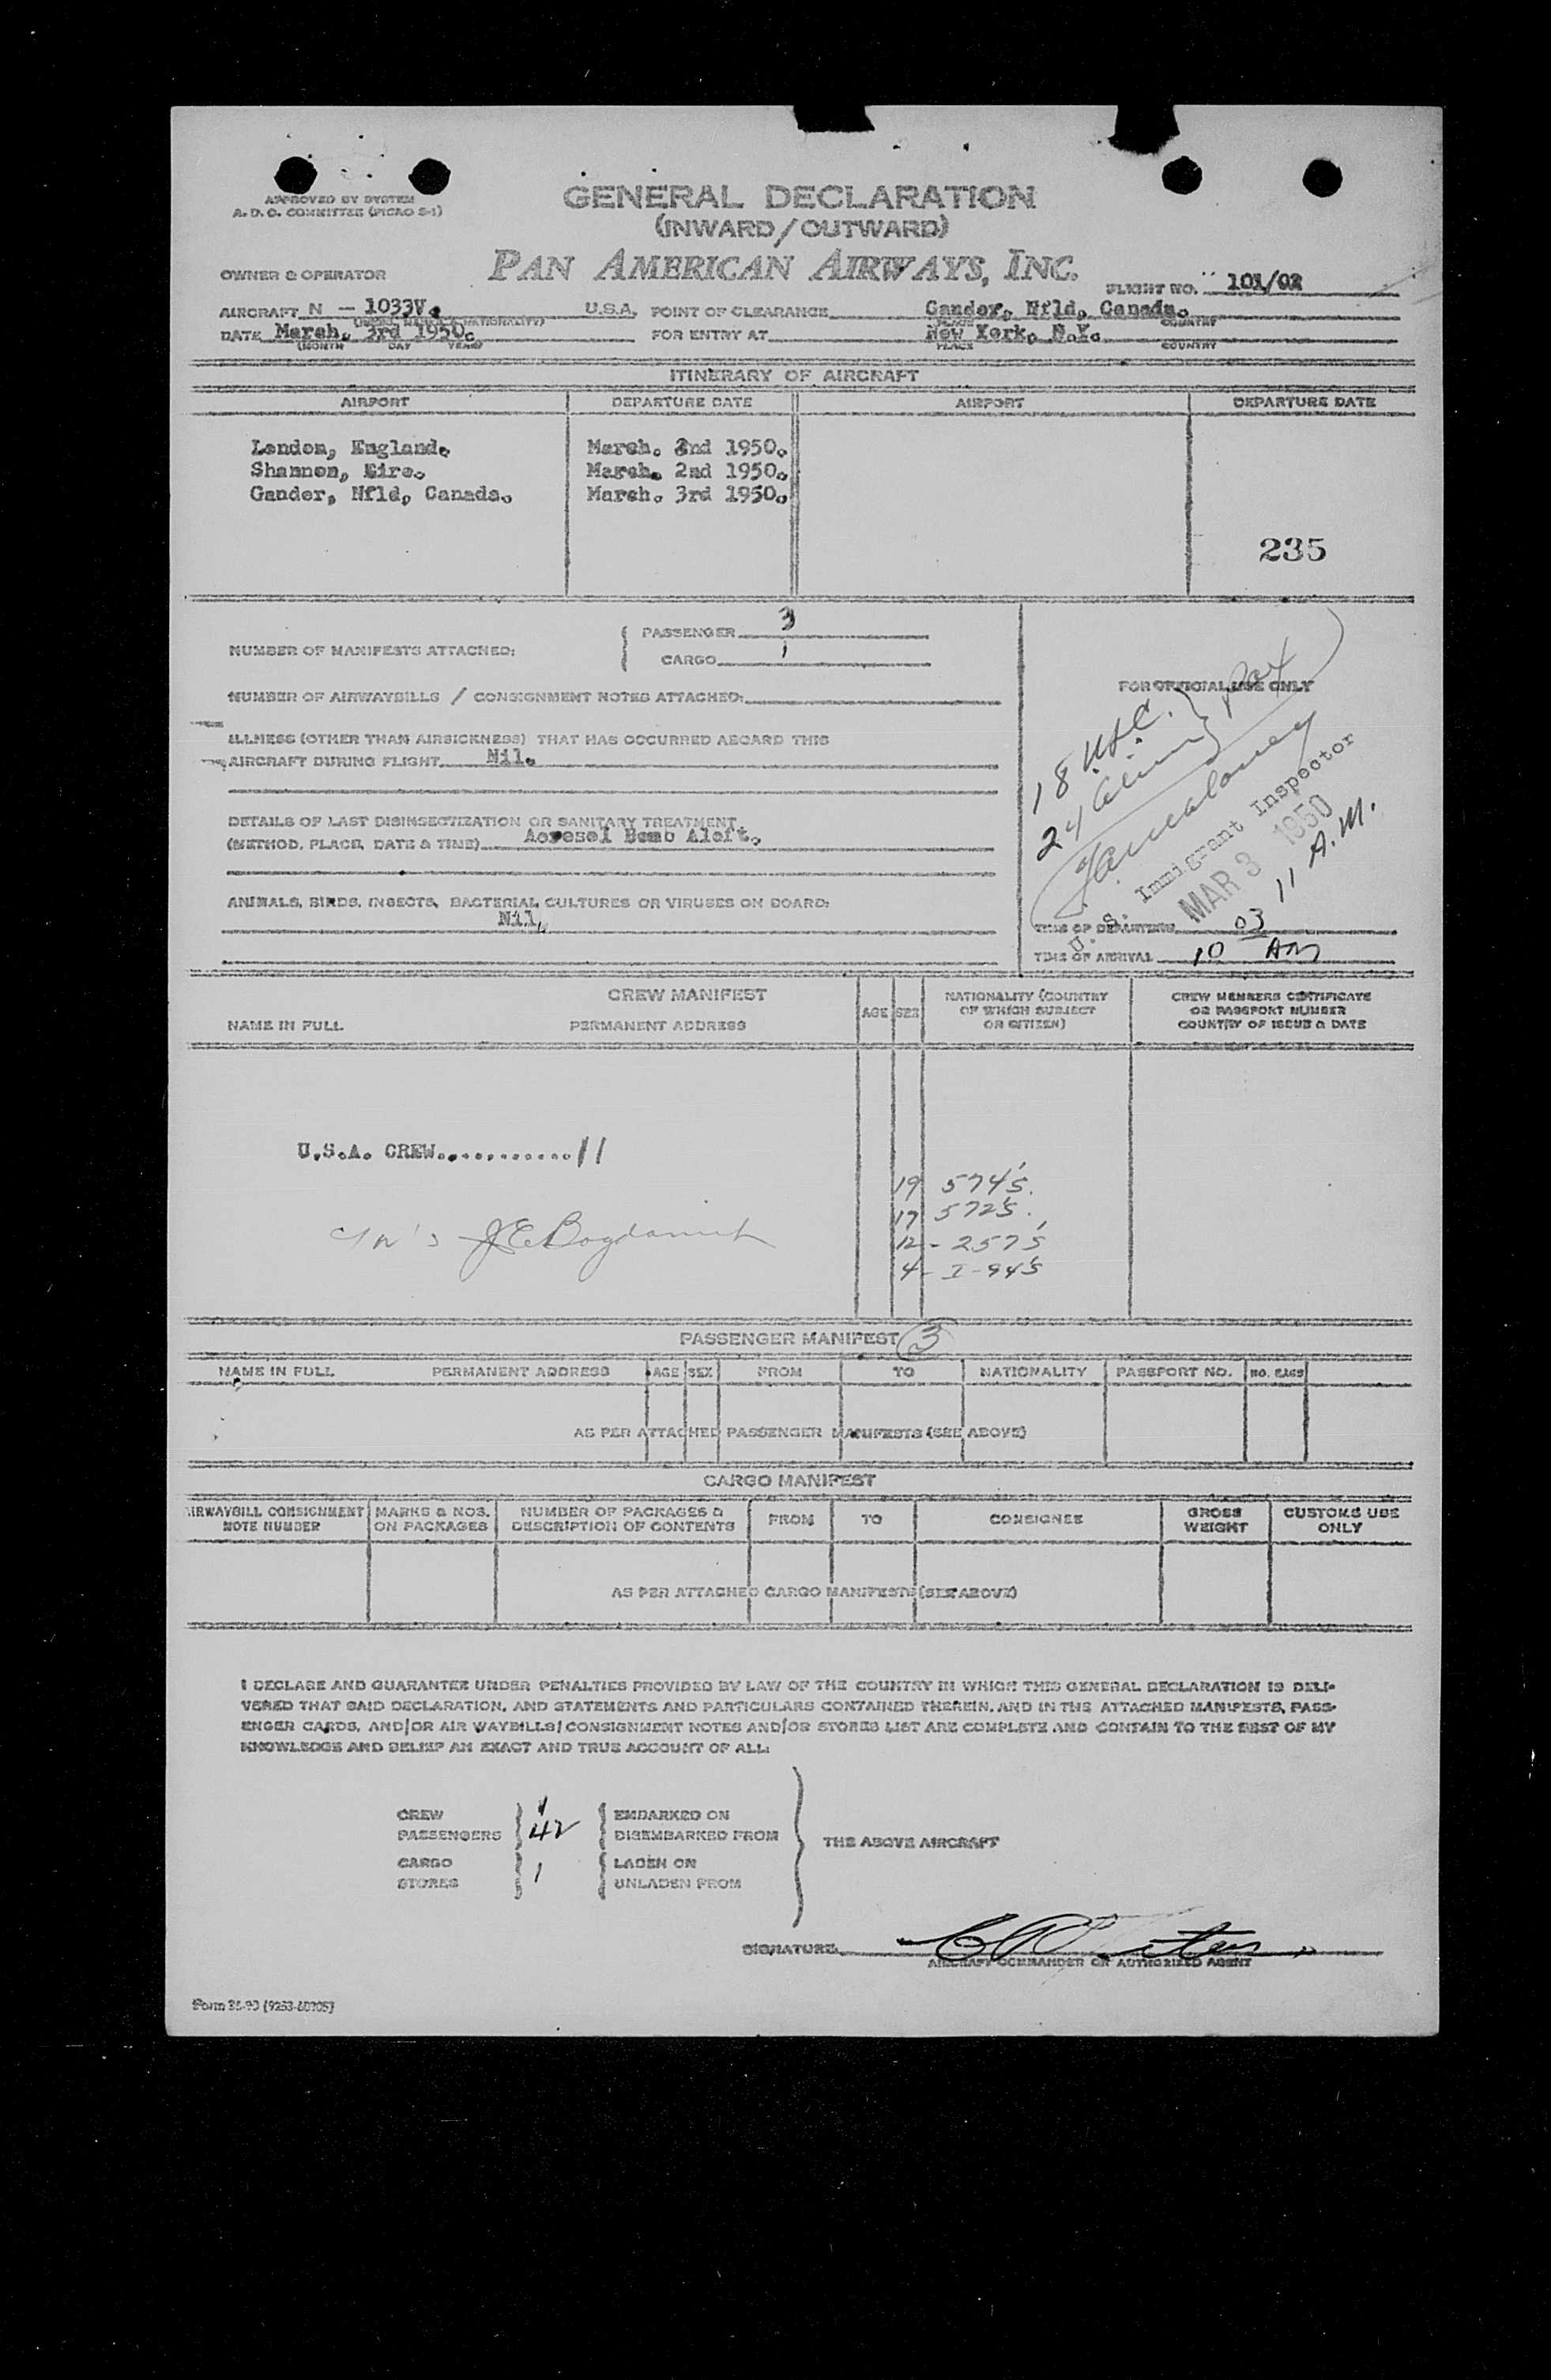 APPROVED BY SYSTEM
A. D. O. COMMITTEE (PICAO S-1)
GENERAL DECLARATION
(INWARD/OUTWARD)
OWNER & OPERATOR PAN AMERICAN AIRWAYS, INC.
FLIGHT NO. 101/02
AIRCRAFT N - 1033V. U.S.A. POINT OF CLEARANCE Gander, Nfld, Canada.
(REG. MARKS & NATIONALITY) PLACE COUNTRY
DATE March. 3rd 1950. FOR ENTRY AT New York, N.Y.
(MONTH DAY YEAR) PLACE COUNTRY
ITINERARY OF AIRCRAFT
AIRPORT DEPARTURE DATE AIRPORT DEPARTURE DATE
London, England. March. 2nd 1950.
Shannon, Eire. March. 2nd 1950.
Gander, Nfld, Canada. March. 3rd 1950.
235
NUMBER OF MANIFESTS ATTACHED: { PASSENGER 3
CARGO 1
NUMBER OF AIRWAYBILLS / CONSIGNMENT NOTES ATTACHED:
ILLNESS (OTHER THAN AIRSICKNESS) THAT HAS OCCURRED ABOARD THIS
AIRCRAFT DURING FLIGHT Nil.
DETAILS OF LAST DISINSECTIZATION OR SANITARY TREATMENT
(METHOD, PLACE, DATE & TIME) Aoresol Bomb Aloft.
ANIMALS, BIRDS, INSECTS, BACTERIAL CULTURES OR VIRUSES ON BOARD:
Nil.
FOR OFFICIAL USE ONLY
18 USC. } Pax
24 Alien
U. S. Immigrant Inspector
MAR 3 1950
11 A.M.
TIME OF DEPARTURE 03
TIME OF ARRIVAL 10 AM
CREW MANIFEST
NAME IN FULL PERMANENT ADDRESS AGE SEX NATIONALITY (COUNTRY OF WHICH SUBJECT OR CITIZEN) CREW MEMBERS CERTIFICATE OR PASSPORT NUMBER COUNTRY OF ISSUE & DATE
U.S.A. CREW............11
19 574's.
17 572's.
12 - 257's
4 - I-94's
PASSENGER MANIFEST 3
NAME IN FULL PERMANENT ADDRESS AGE SEX FROM TO NATIONALITY PASSPORT NO. NO. BAGS
AS PER ATTACHED PASSENGER MANIFESTS (SEE ABOVE)
CARGO MANIFEST
AIRWAYBILL CONSIGNMENT NOTE NUMBER MARKS & NOS. ON PACKAGES NUMBER OF PACKAGES & DESCRIPTION OF CONTENTS FROM TO CONSIGNEE GROSS WEIGHT CUSTOMS USE ONLY
AS PER ATTACHED CARGO MANIFESTS (SEE ABOVE)
I DECLARE AND GUARANTEE UNDER PENALTIES PROVIDED BY LAW OF THE COUNTRY IN WHICH THIS GENERAL DECLARATION IS DELI-
VERED THAT SAID DECLARATION, AND STATEMENTS AND PARTICULARS CONTAINED THEREIN, AND IN THE ATTACHED MANIFESTS, PASS-
ENGER CARDS, AND/OR AIR WAYBILLS/CONSIGNMENT NOTES AND/OR STORES LIST ARE COMPLETE AND CONTAIN TO THE BEST OF MY
KNOWLEDGE AND BELIEF AN EXACT AND TRUE ACCOUNT OF ALL:
CREW EMBARKED ON
PASSENGERS 42 DISEMBARKED FROM
THE ABOVE AIRCRAFT
CARGO 1 LADEN ON
STORES UNLADEN FROM
SIGNATURE
AIRCRAFT COMMANDER OR AUTHORIZED AGENT